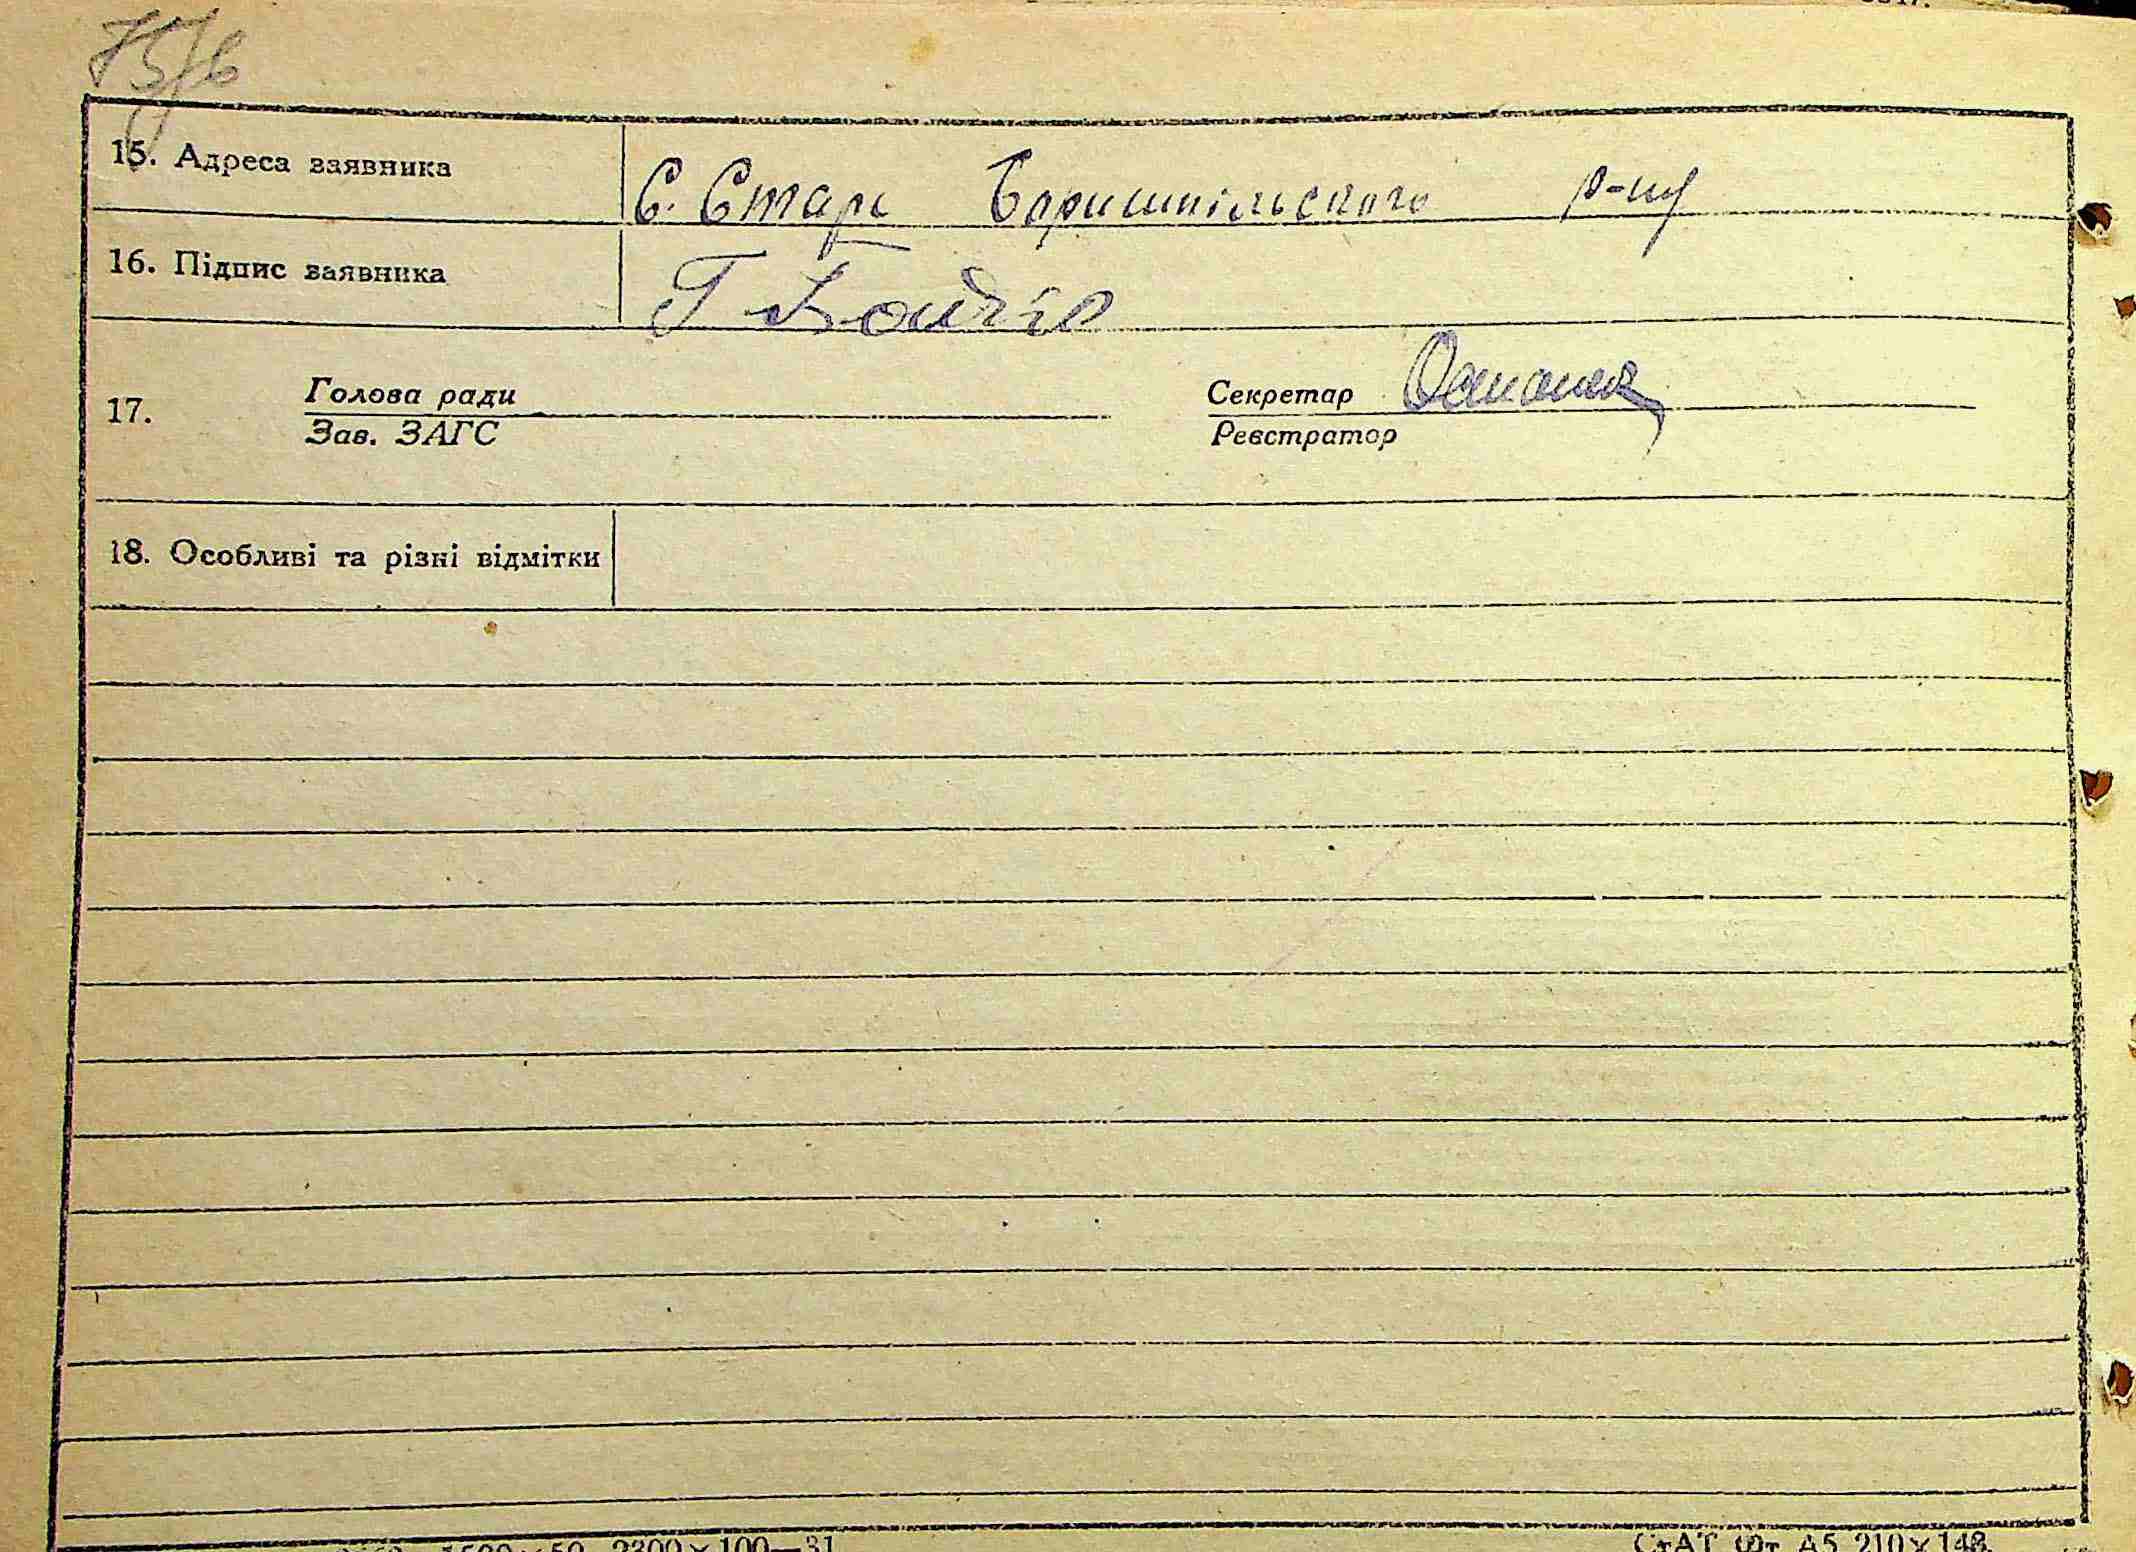 75/в
15. Адреса заявника С. Старе Боришпільського р-ну
16. Підпис заявника Г
17. Голова ради Секретар
Зав. ЗАГС Реєстратор
18. Особливі та різні відмітки
1500×50 2300×100—31 СтАТ Фт А5 210×148